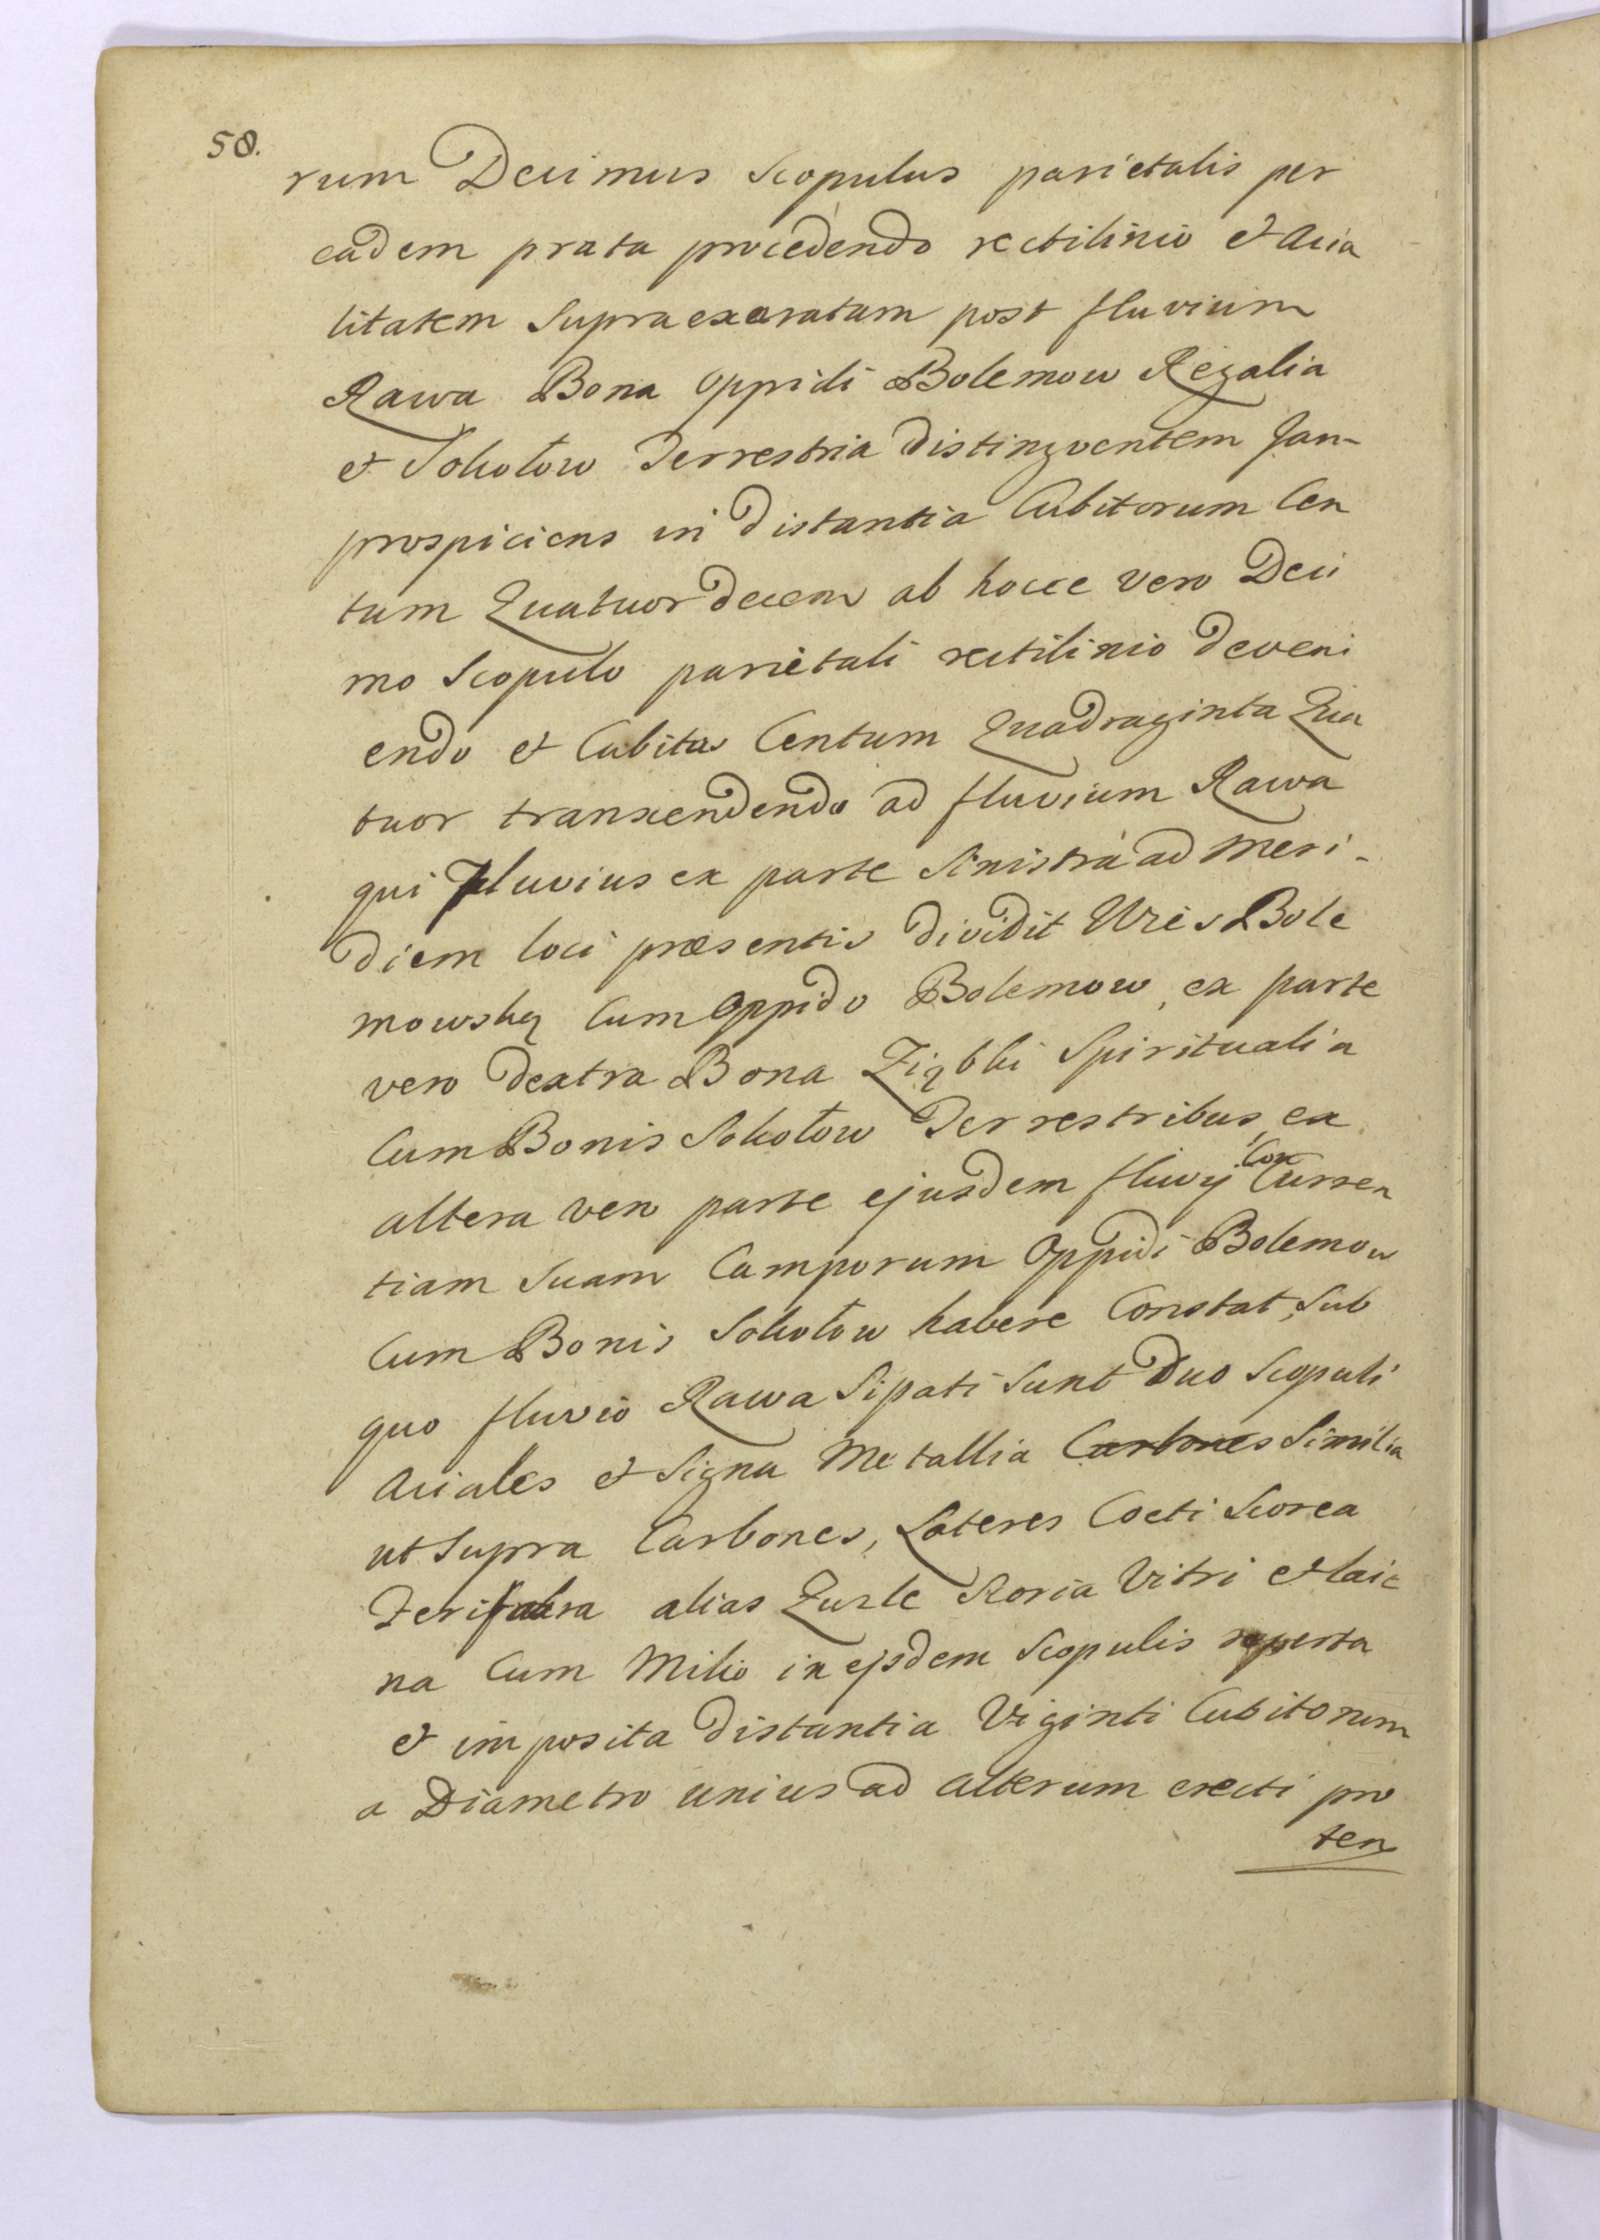 58.
rum Decimus Scopulus parietalis per
eadem prata procedendo rectilinio et Acia
litatem Supraexaratam post fluvium
Rawa Bona Oppidi Bolemow Regalia
et Sokołow Terrestria distingventem Jan-
prospiciens in distantia Cubitorum Cen
tum Quatuordecem ab hocce vero Deci
mo Scopulo parietali rectilinio deveni
endo et Cubitas Centum Quadraginta Qua
tuor transcendendo ad fluvium Rawa
qui Fluvius ex parte Sinistra ad Meri-
diem loci præsentis dividit Wieś Bole
mowską Cum Oppido Bolemow, ex parte
vero dextra Bona Ziąbki Spiritualia
Cum Bonis Sokołow Terrestribus, ex
altera vero parte ejusdem fluvij ConCurren
tiam Suam Camporum Oppidi Bolemow
Cum Bonis Sokołow habere Constat, Sub
quo fluvio Rawa Sipati Sunt Duo Scopuli
Aciales et Signa Metallia Carbones Similia
ut Supra Carbones, Lateres Cocti Scorea
alias Zuzle Scoria Vitri et laic
na Cum Milio in ejsdem Scopulis reperta
et imposita distantia Viginti Cubitorum
a Diametro unius ad alterum erecti pro
ten